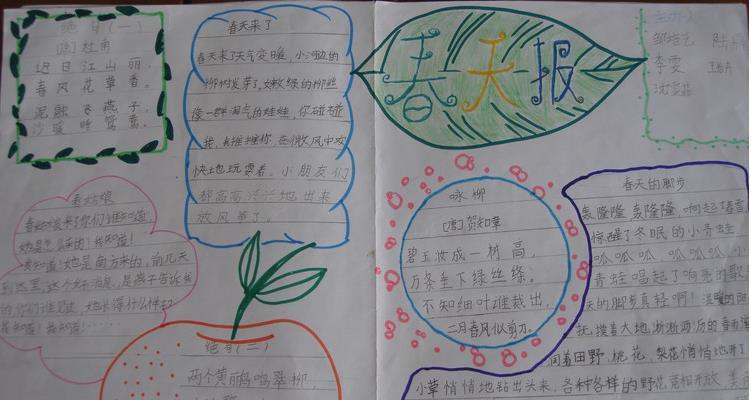 绝句(一)
[唐]杜甫
迟日江山丽,
春风花草香。
泥融飞燕子,
沙暖睡鸳鸯。
春天来了
春天来了天气变暖,小河边的
柳树发芽了,嫩绿的柳丝
像一群淘气的娃娃,你碰碰
我,我推推你,在微风中欢
快地玩耍着。小朋友们
都高高兴兴地出来
放风筝了。
春天报
主办人
李雯
春姑娘
春姑娘来了你们谁知道
她是怎么来的?我知道!
我知道!她是南方来的,前几天
到这里,这个好消息,是燕子告诉我
的你们谁见过,她长得什么样的
我知道!我知道!
绝句(二)
两个黄鹂鸣翠柳,
咏柳
[唐]贺知章
碧玉妆成一树高,
万条垂下绿丝绦。
不知细叶谁裁出,
二月春风似剪刀。
春天的脚步
轰隆隆轰隆隆,响起了春雷
惊醒了冬眠的小青蛙
呱呱呱
青蛙唱起了响亮的歌
天的脚步真轻啊!温暖的阳
抚摸着大地,淅淅沥沥的春雨
润着田野,桃花,梨花悄悄地开了
小草悄悄地钻出头来,各种各样的野花竞相开放,美